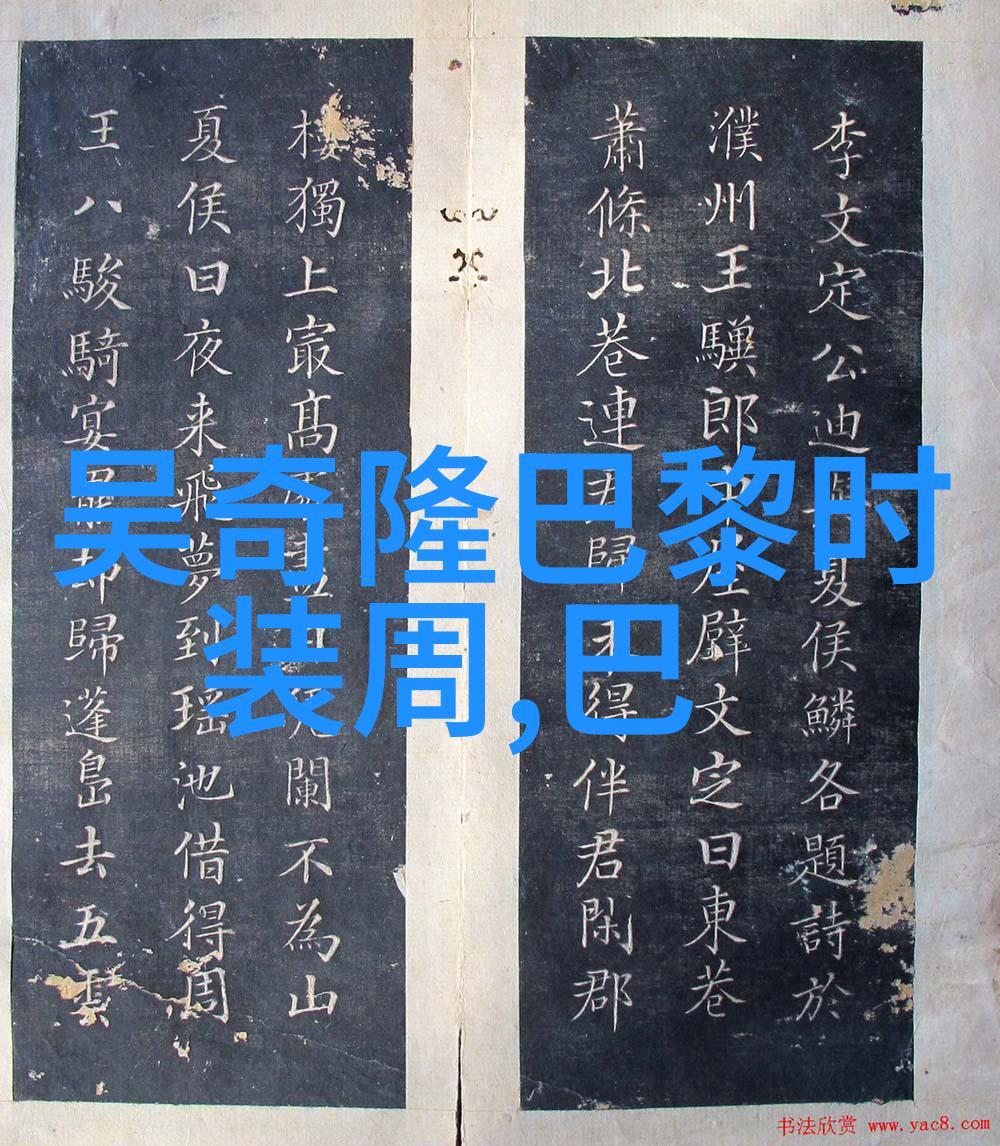 李文定公迪夏侯鱗各題詩於
濮州王郎壁文定曰東巷
蕭條北巷連歸得伴君閑郡
樓獨上寂高闌不為山
夏侯曰夜来飛夢到瑶池借得周
王八駿騎宴罷却歸蓬島去五雲
吴奇隆巴黎时
装周,巴
书法欣赏 www.yac8.com